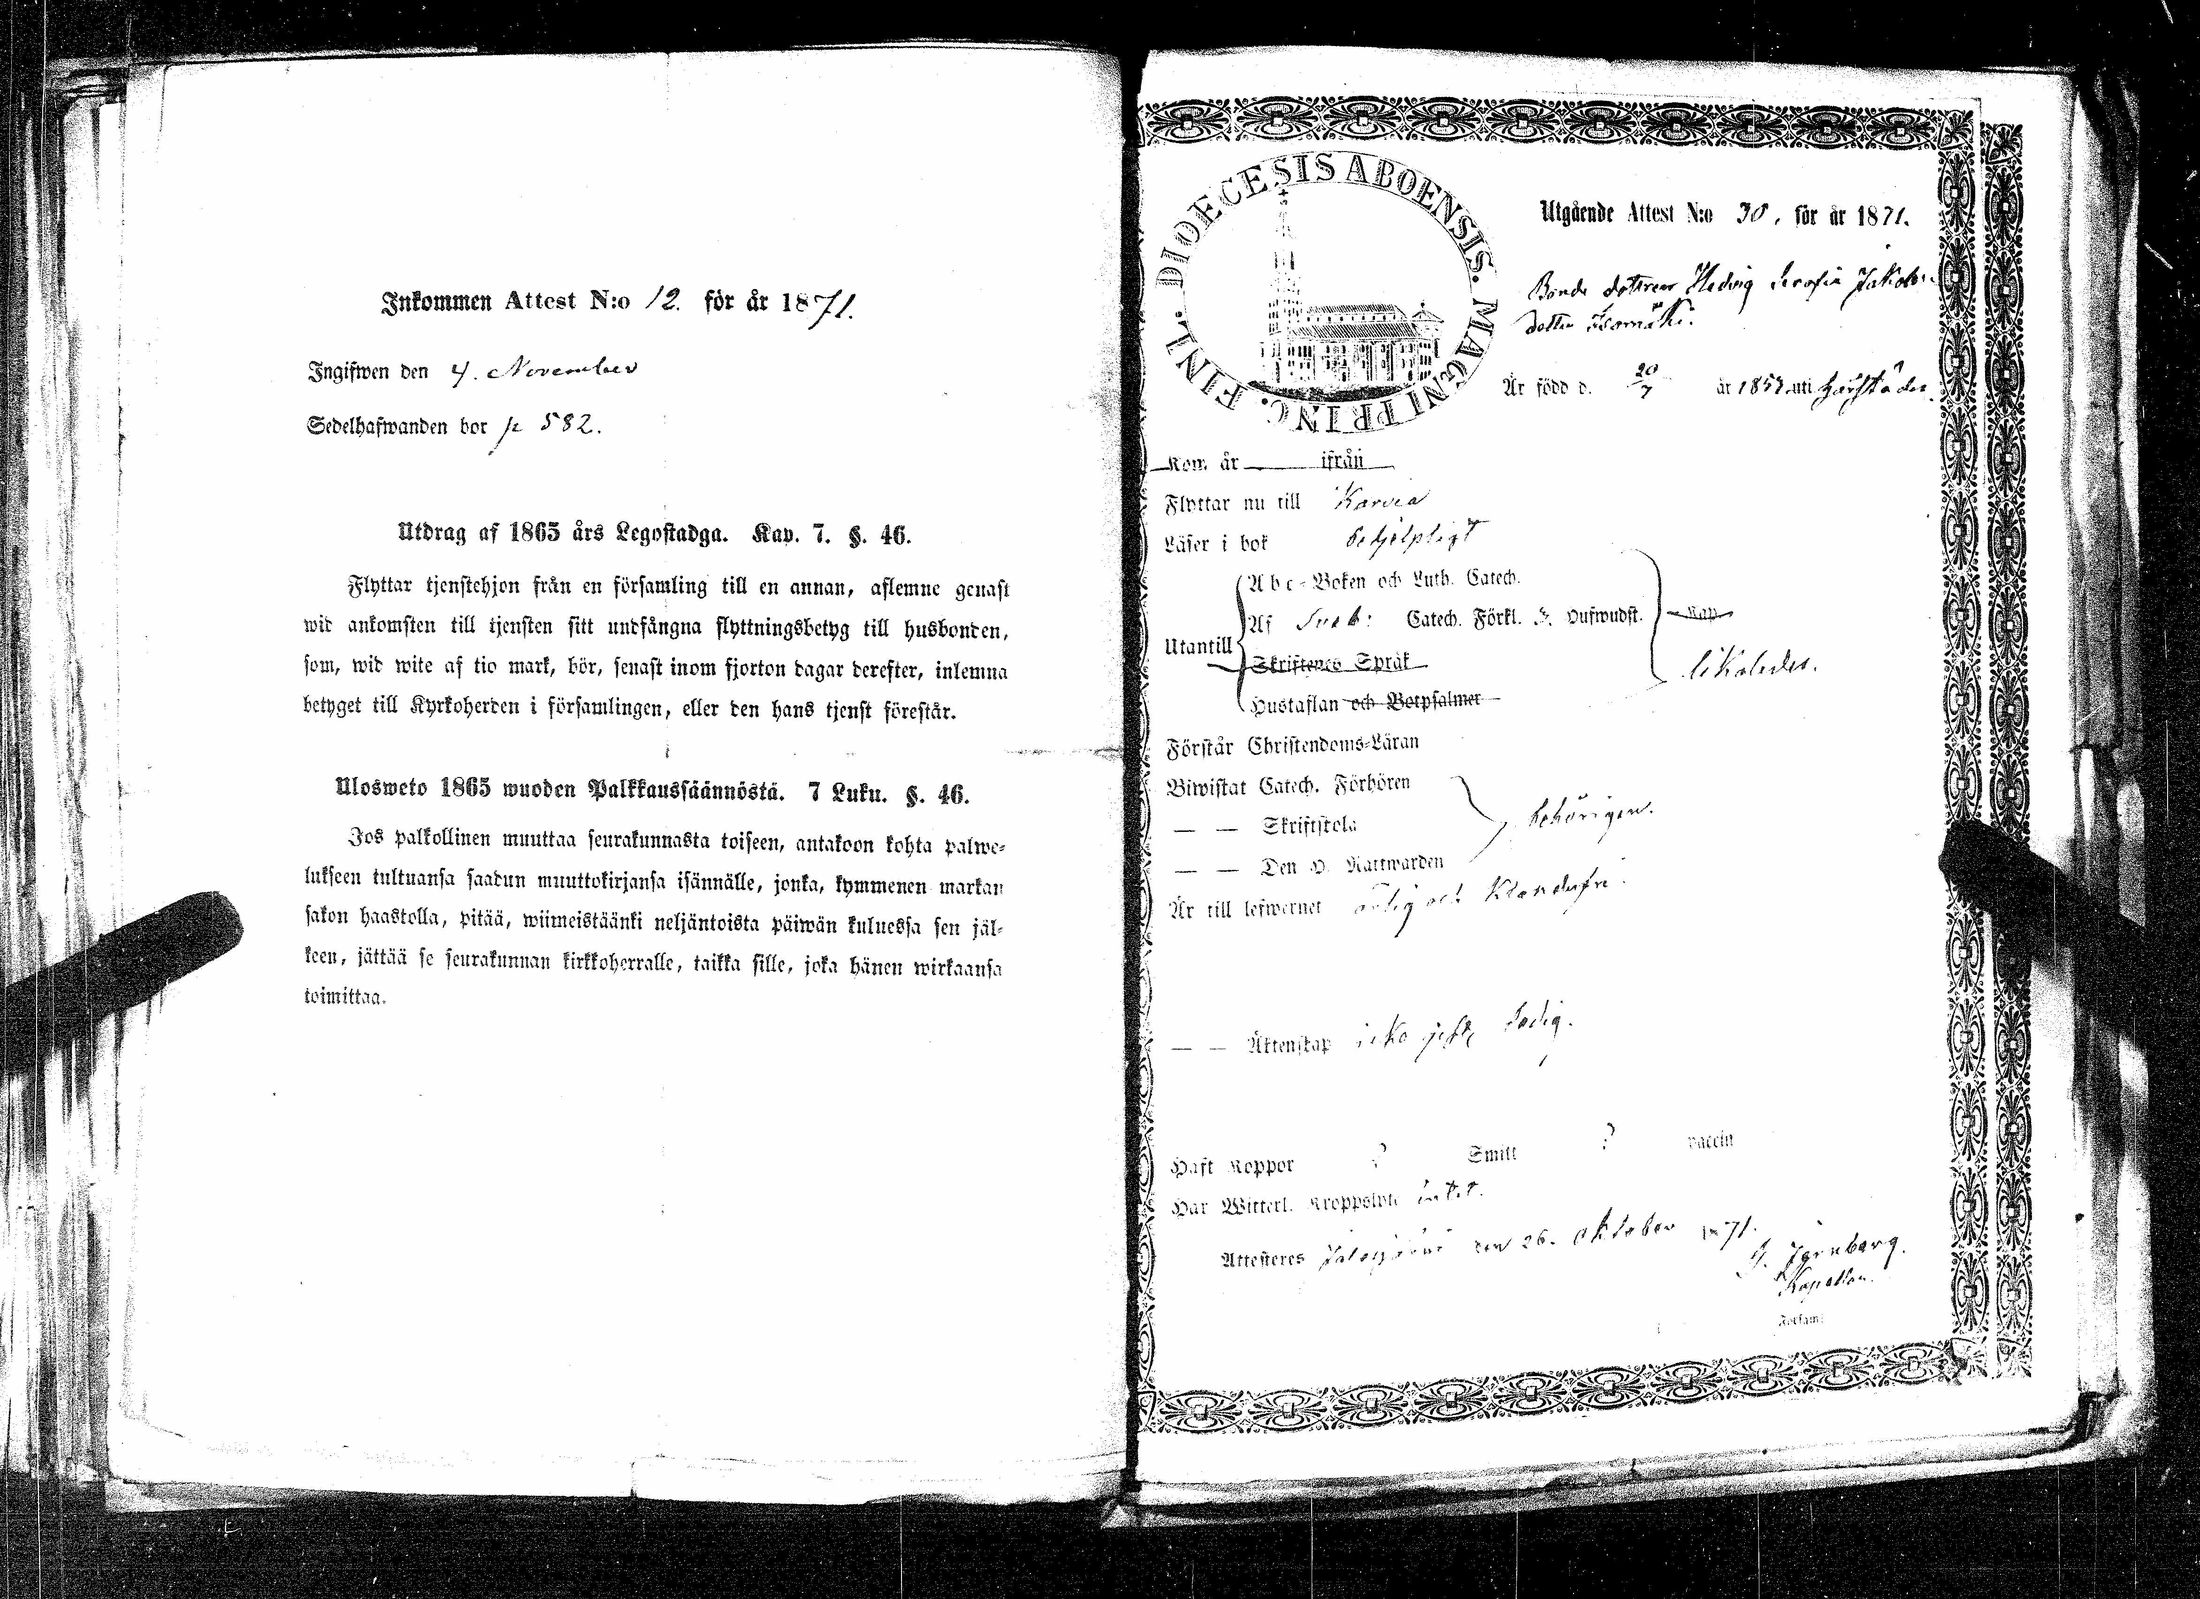 Inkommen Attest N:o 12. för år 1871.
Ingifwen den 4. November
Sedelhafwanden bor p 582.
Utdrag af 1865 års Legostadga. Kap. 7. §. 46.
Flyttar tjenstehjon från en församling till en annan, aflemne genast
wid ankomsten till tjensten sitt undfångna flyttningsbetyg till husbonden,
som, wid wite af tio mark, bör, senast inom fjorton dagar derefter, inlemna
betyget till Kyrkoherden i församlingen, eller den hans tjenst förestår.
Ulosweto 1865 wuoden Palkkaussäännöstä. 7 Luku. §. 46.
Jos palkollinen muuttaa seurakunnasta toiseen, antakoon kohta palwe-
lukseen tultuansa saadun muuttokirjansa isännälle, jonka, kymmenen markan
sakon haastolla, pitää, wiimeistäänki neljäntoista päiwän kuluessa sen jäl-
keen, jättää se seurakunnan kirkkoherralle, taikka sille, joka hänen wirkaansa
toimittaa.
FINL. DIOECESIS ABOENSIS. MAGNI PRINC.
Utgående Attest N:o 30, för år 1871.
Bonde dottren Hedvig Serafia Jakobs
dotter Isomäki.
Är född d. 20/7 år 185 uti
Kom. år ifrån
Flyttar nu till Karvia
Läser i bok behjelpligt
Abc-Boken och Luth. Catech.
Utantill
Af Sveb: Catech. Förkl. H. Hufwudst. Kap
Skriftenes Språk
likaledes.
Hustaflan och Botpsalmer
Förstår Christendoms-Läran
Biwistat Catech. Förhören
— — Skriftskola behörigen.
— — Den H. Nattwarden
Är till lefwernet ärlig och klanderfri.
— — Äktenskap icke gift, ledig.
Haft Koppor ? Smitt ? vaccin
Har Witterl. Kroppslyte intet.
Attesteres Jalasjärvi den 26. Oktober 1871.
Kapellan.
Församl.